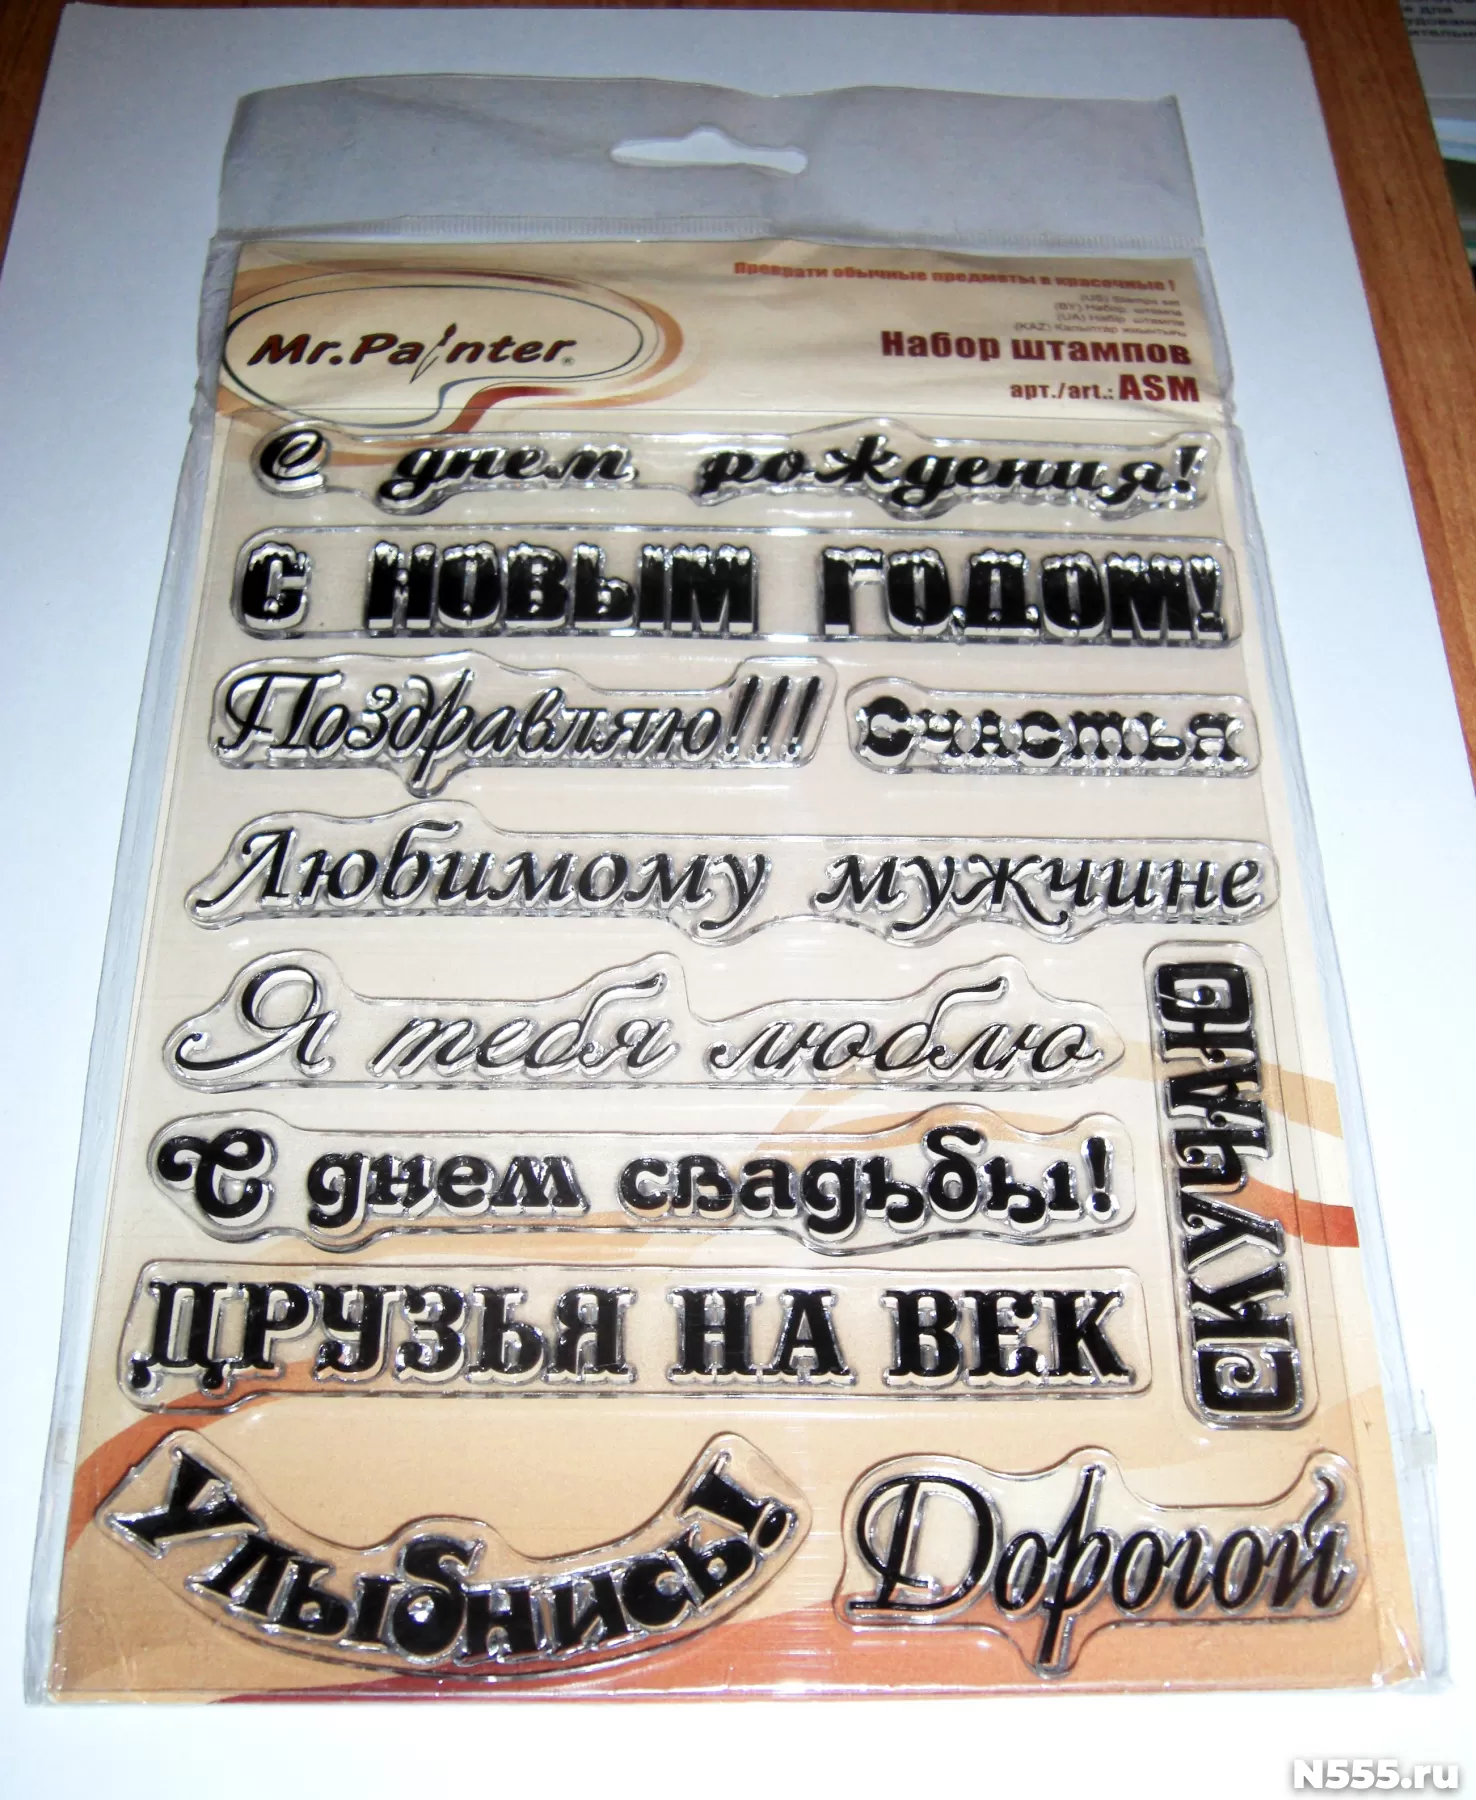 Преврати обычные предметы в красочные !
(US) Stamps set
(BY) Набор штампа
(UA) Набір штампів
(KAZ) Қалыптар жиынтығы
Mr.Painter®
Набор штампов
арт./art.: ASM
С днем рождения!
С НОВЫМ ГОДОМ!
Поздравляю!!! Счастья
Любимому мужчине
Я тебя люблю
СКУЧАЮ
С днем свадьбы!
ДРУЗЬЯ НА ВЕК
Улыбнись!
Дорогой
N555.ru